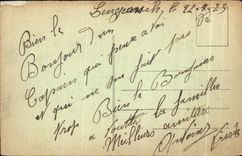 le 22-
Bien le
Bonjour d'un
Copain qui pense a toi
et qui ne s'en fait pas
trop
Bien le Bonjour
a toutte la familles
Meilleurs amitiés